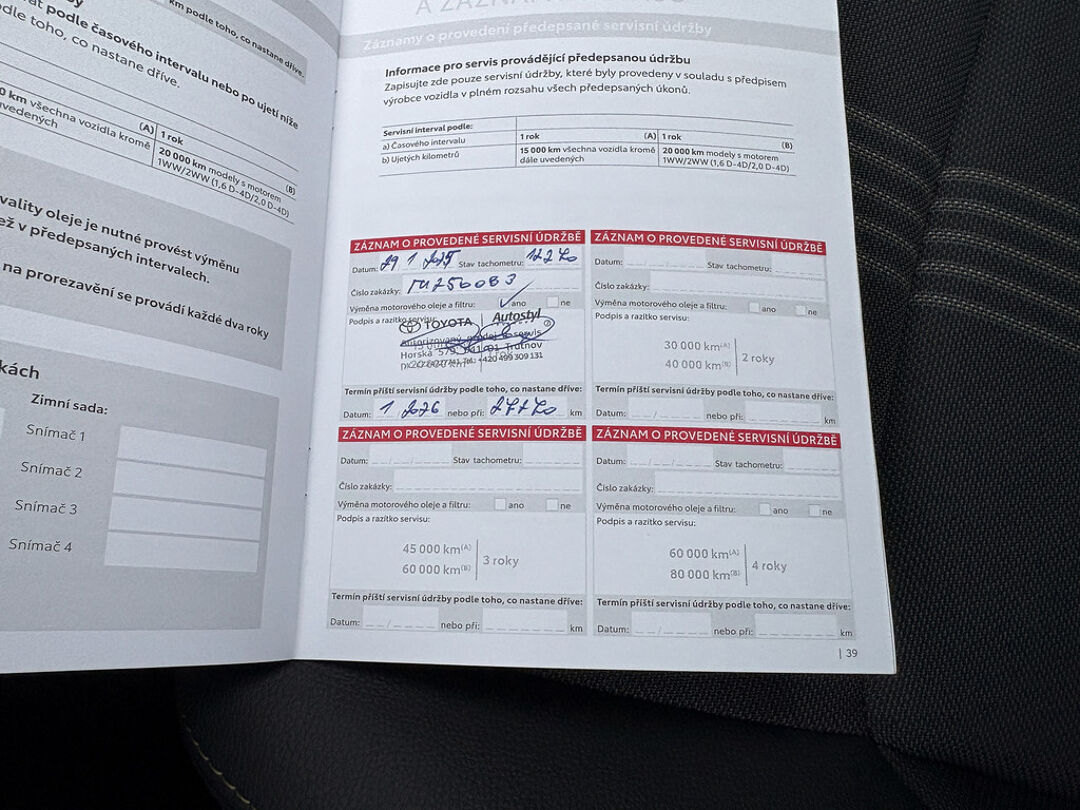 km podle toho, co nastane dříve.
podle časového intervalu nebo po ujetí níže
dle toho, co nastane dříve.
(A) 1 rok (B)
0 km všechna vozidla kromě 20 000 km modely s motorem
uvedených 1WW/2WW (1,6 D-4D/2,0 D-4D)
vality oleje je nutné provést výměnu
ež v předepsaných intervalech.
na prorezavění se provádí každé dva roky
kách
Zimní sada:
Snímač 1
Snímač 2
Snímač 3
Snímač 4
Záznamy o provedení předepsané servisní údržby
Informace pro servis provádějící předepsanou údržbu
Zapisujte zde pouze servisní údržby, které byly provedeny v souladu s předpisem
výrobce vozidla v plném rozsahu všech předepsaných úkonů.
Servisní interval podle:
a) Časového intervalu 1 rok (A) 1 rok (B)
b) Ujetých kilometrů 15 000 km všechna vozidla kromě 20 000 km modely s motorem
dále uvedených 1WW/2WW (1,6 D-4D/2,0 D-4D)
ZÁZNAM O PROVEDENÉ SERVISNÍ ÚDRŽBĚ
Datum: 29 1 2025 Stav tachometru: 12270
Číslo zakázky:
Výměna motorového oleje a filtru: ano ne
Podpis a razítko servisu:
TOYOTA Autostyl
Autorizovaný prodej a servis
Horská 579, 541 01 Trutnov
Tel.: +420 499 309 131
Termín příští servisní údržby podle toho, co nastane dříve:
Datum: 1 / 2026 nebo při: 27270 km
ZÁZNAM O PROVEDENÉ SERVISNÍ ÚDRŽBĚ
Datum: Stav tachometru:
Číslo zakázky:
Výměna motorového oleje a filtru: ano ne
Podpis a razítko servisu:
30 000 km(A)
40 000 km(B)
2 roky
Termín příští servisní údržby podle toho, co nastane dříve:
Datum: nebo při: km
ZÁZNAM O PROVEDENÉ SERVISNÍ ÚDRŽBĚ
Datum: Stav tachometru:
Číslo zakázky:
Výměna motorového oleje a filtru: ano ne
Podpis a razítko servisu:
45 000 km(A)
60 000 km(B)
3 roky
Termín příští servisní údržby podle toho, co nastane dříve:
Datum: nebo při: km
ZÁZNAM O PROVEDENÉ SERVISNÍ ÚDRŽBĚ
Datum: Stav tachometru:
Číslo zakázky:
Výměna motorového oleje a filtru: ano ne
Podpis a razítko servisu:
60 000 km(A)
80 000 km(B)
4 roky
Termín příští servisní údržby podle toho, co nastane dříve:
Datum: nebo při: km
| 39